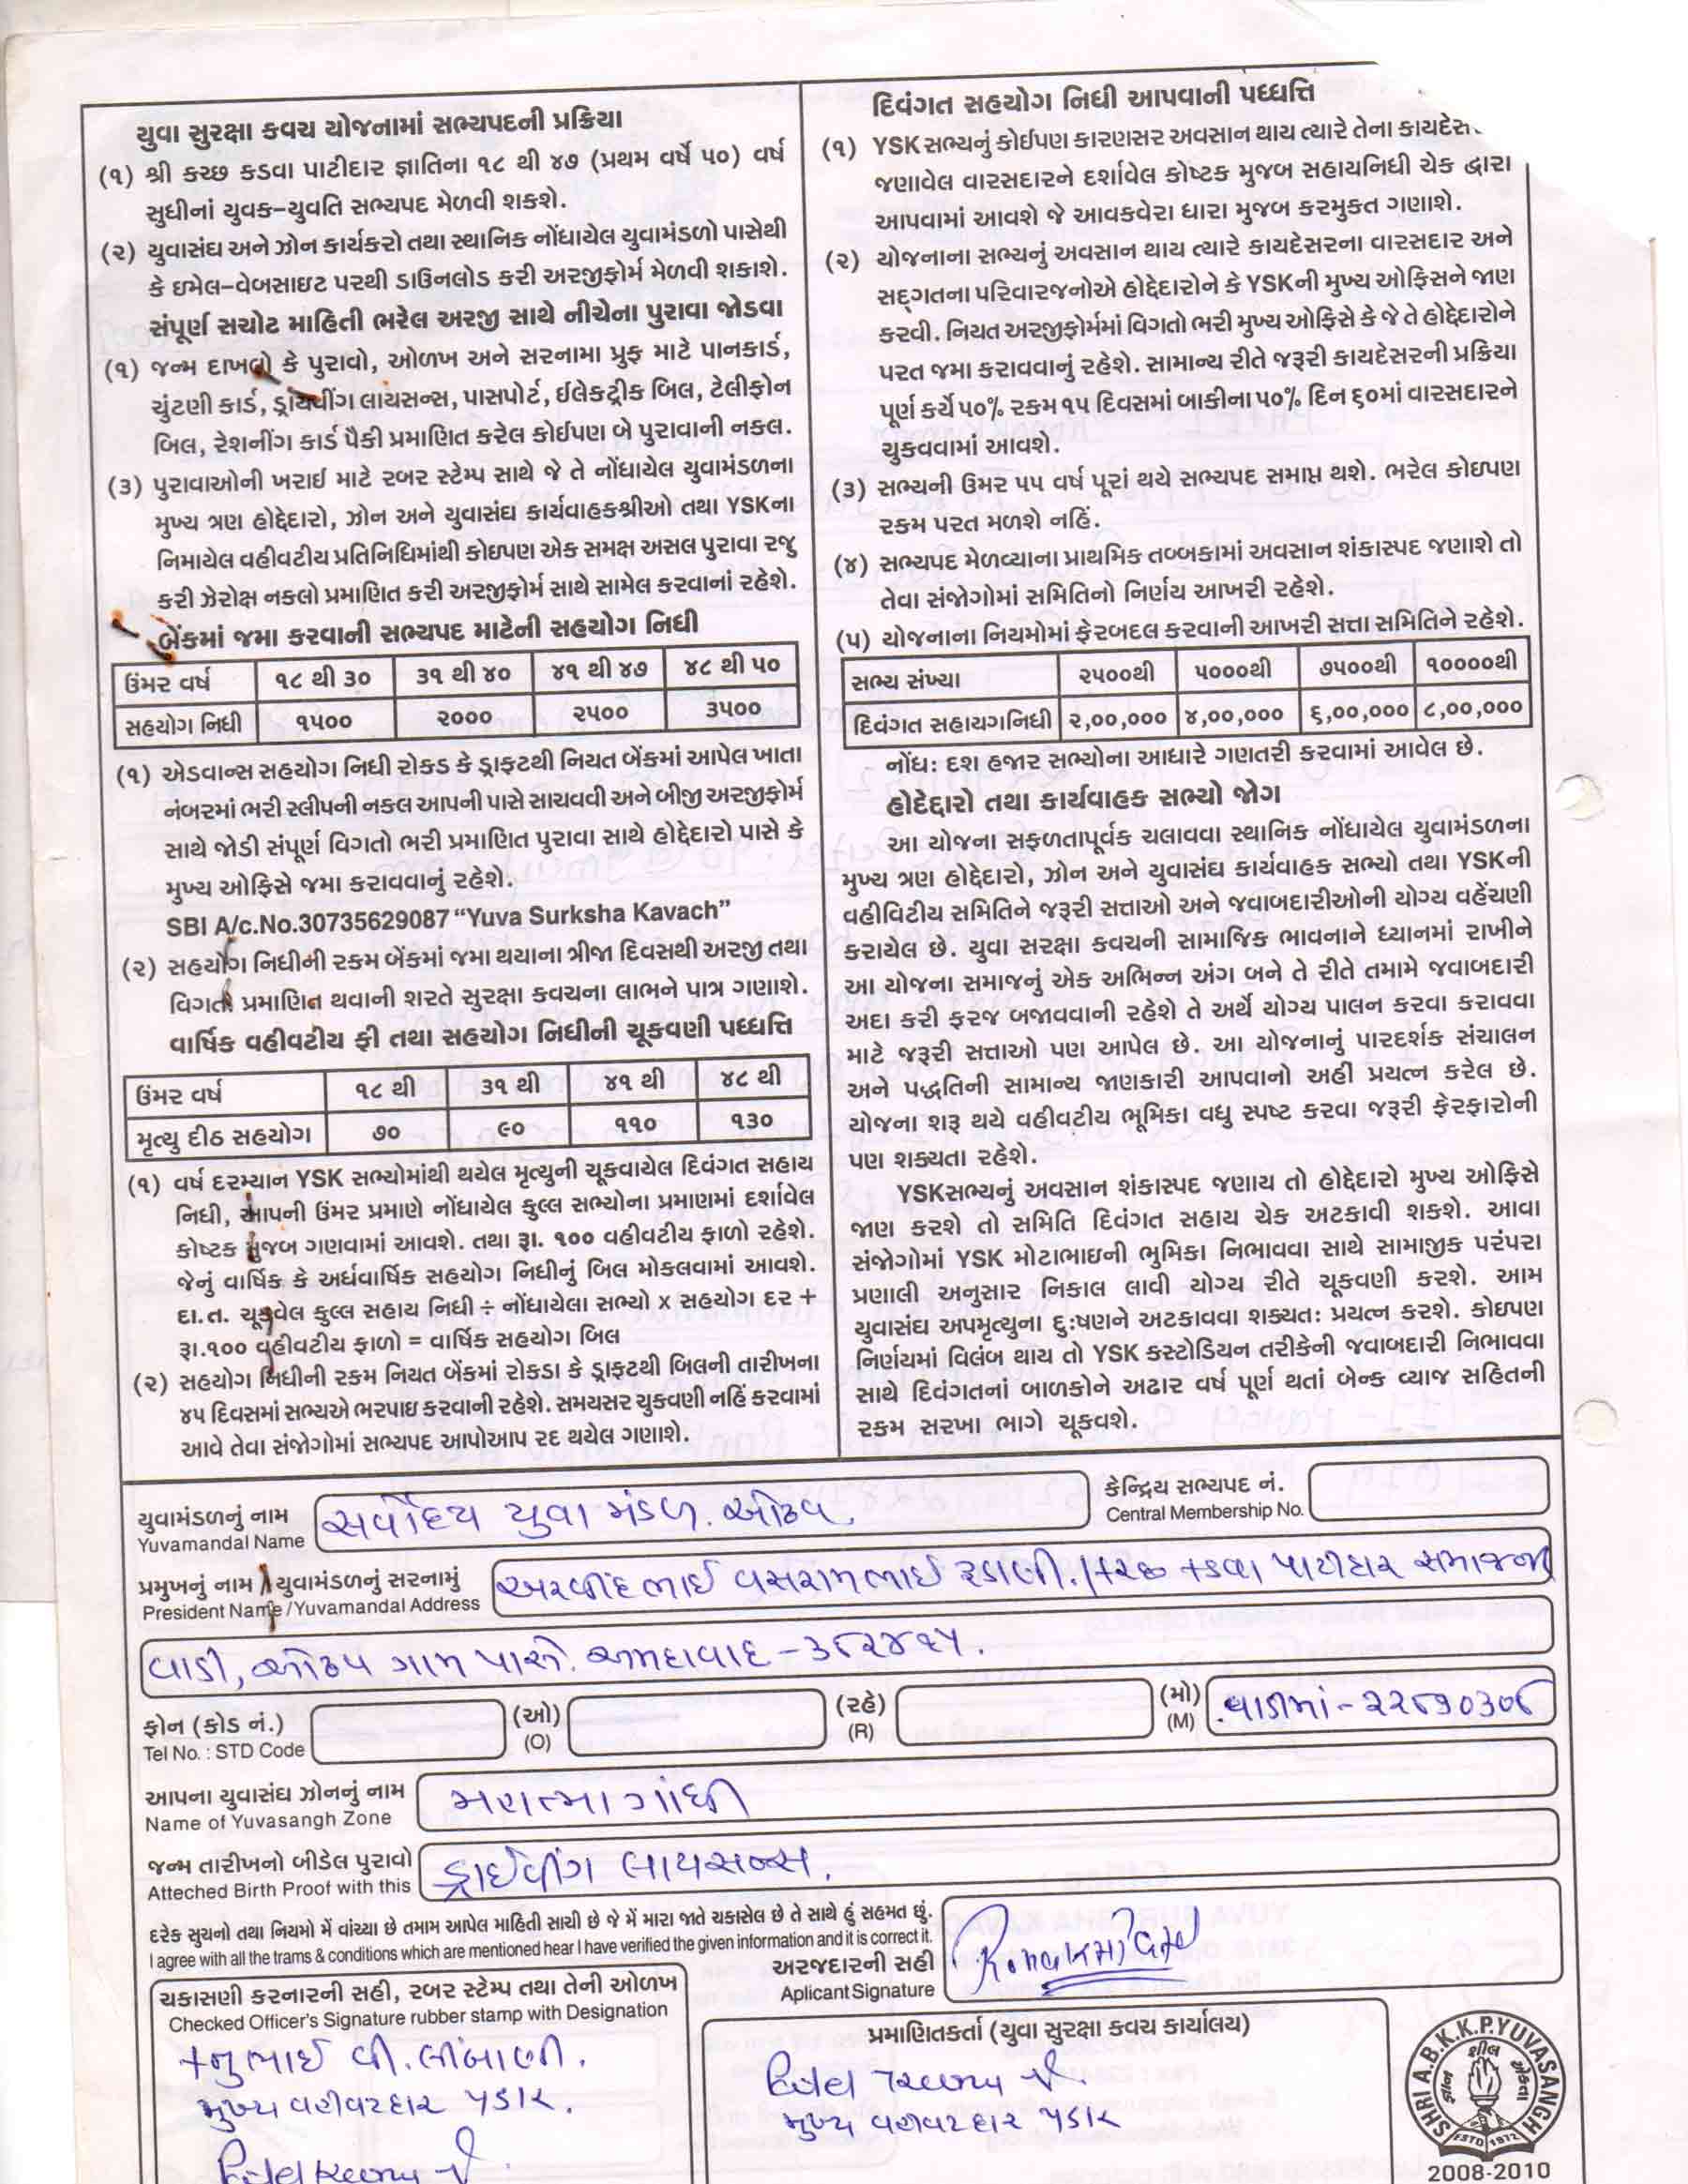 યુવા સુરક્ષા કવચ યોજનામાં સભ્યપદની પ્રક્રિયા
(૧) શ્રી કચ્છ કડવા પાટીદાર જ્ઞાતિના ૧૮ થી ૪૭ (પ્રથમ વર્ષે ૫૦) વર્ષ
સુધીનાં યુવક-યુવતિ સભ્યપદ મેળવી શકશે.
(૨) યુવાસંઘ અને ઝોન કાર્યકરો તથા સ્થાનિક નોંધાયેલ યુવામંડળો પાસેથી
કે ઇમેલ-વેબસાઇટ પરથી ડાઉનલોડ કરી અરજીફોર્મ મેળવી શકાશે.
સંપૂર્ણ સચોટ માહિતી ભરેલ અરજી સાથે નીચેના પુરાવા જોડવા
(૧) જન્મ દાખલો કે પુરાવો, ઓળખ અને સરનામા પ્રુફ માટે પાનકાર્ડ,
ચુંટણી કાર્ડ, ડ્રાંયવીંગ લાયસન્સ, પાસપોર્ટ, ઈલેકટ્રીક બિલ, ટેલીફોન
બિલ, રેશનીંગ કાર્ડ પૈકી પ્રમાણિત કરેલ કોઈપણ બે પુરાવાની નકલ.
(૩) પુરાવાઓની ખરાઈ માટે રબર સ્ટેમ્પ સાથે જે તે નોંધાયેલ યુવામંડળના
મુખ્ય ત્રણ હોદ્દેદારો, ઝોન અને યુવાસંઘ કાર્યવાહકશ્રીઓ તથા YSKના
નિમાયેલ વહીવટીય પ્રતિનિધિમાંથી કોઇપણ એક સમક્ષ અસલ પુરાવા રજુ
કરી ઝેરોક્ષ નકલો પ્રમાણિત કરી અરજીફોર્મ સાથે સામેલ કરવાનાં રહેશે.
બેંકમાં જમા કરવાની સભ્યપદ માટેની સહયોગ નિધી
ઉંમર વર્ષ ૧૮ થી ૩૦ ૩૧ થી ૪૦ ૪૧ થી ૪૭ ૪૮ થી ૫૦
સહયોગ નિધી ૧૫૦૦ ૨૦૦૦ ૨૫૦૦ ૩૫૦૦
(૧) એડવાન્સ સહયોગ નિધી રોકડ કે ડ્રાફટથી નિયત બેંકમાં આપેલ ખાતા
નંબરમાં ભરી સ્લીપની નકલ આપની પાસે સાચવવી અને બીજી અરજીફોર્મ
સાથે જોડી સંપૂર્ણ વિગતો ભરી પ્રમાણિત પુરાવા સાથે હોદ્દેદારો પાસે કે
મુખ્ય ઓફિસે જમા કરાવવાનું રહેશે.
SBI A/c.No.30735629087 “Yuva Surksha Kavach”
(૨) સહયોગ નિધીની રકમ બેંકમાં જમા થયાના ત્રીજા દિવસથી અરજી તથા
વિગતો પ્રમાણિત થવાની શરતે સુરક્ષા કવચના લાભને પાત્ર ગણાશે.
વાર્ષિક વહીવટીય ફી તથા સહયોગ નિધીની ચૂકવણી પધ્ધતિ
ઉંમર વર્ષ ૧૮ થી ૩૧ થી ૪૧ થી ૪૮ થી
મૃત્યુ દીઠ સહયોગ ૭૦ ૯૦ ૧૧૦ ૧૩૦
(૧) વર્ષ દરમ્યાન YSK સભ્યોમાંથી થયેલ મૃત્યુની ચૂકવાયેલ દિવંગત સહાય
નિધી, આપની ઉંમર પ્રમાણે નોંધાયેલ કુલ્લ સભ્યોના પ્રમાણમાં દર્શાવેલ
કોષ્ટક મુજબ ગણવામાં આવશે. તથા રૂા. ૧૦૦ વહીવટીય ફાળો રહેશે.
જેનું વાર્ષિક કે અર્ધવાર્ષિક સહયોગ નિધીનું બિલ મોકલવામાં આવશે.
દા.ત. ચૂકવેલ કુલ્લ સહાય નિધી ÷ નોંધાયેલા સભ્યો x સહયોગ દર +
રૂા.૧૦૦ વહીવટીય ફાળો = વાર્ષિક સહયોગ બિલ
(૨) સહયોગ નિધીની રકમ નિયત બેંકમાં રોકડા કે ડ્રાફટથી બિલની તારીખના
૪૫ દિવસમાં સભ્યએ ભરપાઇ કરવાની રહેશે. સમયસર ચુકવણી નહિં કરવામાં
આવે તેવા સંજોગોમાં સભ્યપદ આપોઆપ રદ થયેલ ગણાશે.
દિવંગત સહયોગ નિધી આપવાની પધ્ધતિ
(૧) YSK સભ્યનું કોઈપણ કારણસર અવસાન થાય ત્યારે તેના
જણાવેલ વારસદારને દર્શાવેલ કોષ્ટક મુજબ સહાયનિધી ચેક દ્વારા
આપવામાં આવશે જે આવકવેરા ધારા મુજબ કરમુકત ગણાશે.
(૨) યોજનાના સભ્યનું અવસાન થાય ત્યારે કાયદેસરના વારસદાર અને
સદ્ગતના પરિવારજનોએ હોદ્દેદારોને કે YSKની મુખ્ય ઓફિસને જાણ
કરવી. નિયત અરજીફોર્મમાં વિગતો ભરી મુખ્ય ઓફિસે કે જે તે હોદ્દેદારોને
પરત જમા કરાવવાનું રહેશે. સામાન્ય રીતે જરૂરી કાયદેસરની પ્રક્રિયા
પૂર્ણ કર્યે ૫૦% રકમ ૧૫ દિવસમાં બાકીના ૫૦% દિન ૬૦માં વારસદારને
ચુકવવામાં આવશે.
(૩) સભ્યની ઉંમર ૫૫ વર્ષ પૂરાં થયે સભ્યપદ સમાપ્ત થશે. ભરેલ કોઇપણ
રકમ પરત મળશે નહિં.
(૪) સભ્યપદ મેળવ્યાના પ્રાથમિક તબ્બકામાં અવસાન શંકાસ્પદ જણાશે તો
તેવા સંજોગોમાં સમિતિનો નિર્ણય આખરી રહેશે.
(૫) યોજનાના નિયમોમાં ફેરબદલ કરવાની આખરી સત્તા સમિતિને રહેશે.
સભ્ય સંખ્યા ૨૫૦૦થી ૫૦૦૦થી ૭૫૦૦થી ૧૦૦૦૦થી
દિવંગત સહાયગનિધી ૨,૦૦,૦૦૦ ૪,૦૦,૦૦૦ ૬,૦૦,૦૦૦ ૮,૦૦,૦૦૦
નોંધઃ દશ હજાર સભ્યોના આધારે ગણતરી કરવામાં આવેલ છે.
હોદેદ્દારો તથા કાર્યવાહક સભ્યો જોગ
આ યોજના સફળતાપૂર્વક ચલાવવા સ્થાનિક નોંધાયેલ યુવામંડળના
મુખ્ય ત્રણ હોદ્દેદારો, ઝોન અને યુવાસંઘ કાર્યવાહક સભ્યો તથા YSKની
વહીવિટીય સમિતિને જરૂરી સત્તાઓ અને જવાબદારીઓની યોગ્ય વહેંચણી
કરાયેલ છે. યુવા સરક્ષા કવચની સામાજિક ભાવનાને ધ્યાનમાં રાખીને
આ યોજના સમાજનું એક અભિન્ન અંગ બને તે રીતે તમામે જવાબદારી
અદા કરી ફરજ બજાવવાની રહેશે તે અર્થે યોગ્ય પાલન કરવા કરાવવા
માટે જરૂરી સત્તાઓ પણ આપેલ છે. આ યોજનાનું પારદર્શક સંચાલન
અને પદ્ધતિની સામાન્ય જાણકારી આપવાનો અહી પ્રયત્ન કરેલ છે.
યોજના શરૂ થયે વહીવટીય ભૂમિકા વધુ સ્પષ્ટ કરવા જરૂરી ફેરફારોની
પણ શક્યતા રહેશે.
YSKસભ્યનું અવસાન શંકાસ્પદ જણાય તો હોદ્દેદારો મુખ્ય ઓફિસે
જાણ કરશે તો સમિતિ દિવંગત સહાય ચેક અટકાવી શકશે. આવા
સંજોગોમાં YSK મોટાભાઇની ભુમિકા નિભાવવા સાથે સામાજીક પરંપરા
પ્રણાલી અનુસાર નિકાલ લાવી યોગ્ય રીતે ચૂકવણી કરશે. આમ
યુવાસંઘ અપમૃત્યુના દુઃષણને અટકાવવા શક્યતઃ પ્રયત્ન કરશે. કોઇપણ
નિર્ણયમાં વિલંબ થાય તો YSK કસ્ટોડિયન તરીકેની જવાબદારી નિભાવવા
સાથે દિવંગતનાં બાળકોને અઢાર વર્ષ પૂર્ણ થતાં બેન્ક વ્યાજ સહિતની
રકમ સરખા ભાગે ચૂકવશે.
યુવામંડળનું નામ સર્વોદય યુવા મંડળ. ઓઢવ. કેન્દ્રિય સભ્યપદ નં.
Yuvamandal Name Central Membership No.
પ્રમુખનું નામ / યુવામંડળનું સરનામું અરવીંદભાઈ વસરામભાઈ રૂડાણી. / કચ્છ કડવા પાટીદાર સમાજની
President Name / Yuvamandal Address
વાડી, ઓઢવ ગામ પાસે. અમદાવાદ - ૩૮૨૪૧૫.
ફોન (કોડ નં.) (ઓ) (રહે) (મો) વાડીમાં - ૨૨૮૭૦૩૦૬
Tel No. : STD Code (O) (R) (M)
આપના યુવાસંઘ ઝોનનું નામ મહાત્મા ગાંધી
Name of Yuvasangh Zone
જન્મ તારીખનો બીડેલ પુરાવો ડ્રાઈવીંગ લાયસન્સ.
Atteched Birth Proof with this
દરેક સુચનો તથા નિયમો મેં વાંચ્યા છે તમામ આપેલ માહિતી સાચી છે જે મેં મારા જાતે ચકાસેલ છે તે સાથે હું સહમત છું.
I agree with all the trams & conditions which are mentioned hear I have verified the given information and it is correct it.
અરજદારની સહી
Aplicant Signature
ચકાસણી કરનારની સહી, રબર સ્ટેમ્પ તથા તેની ઓળખ
Checked Officer's Signature rubber stamp with Designation
કનુભાઈ વી. લીંબાણી.
મુખ્ય વહીવટદાર YSK.
પ્રમાણિતકર્તા (યુવા સુરક્ષા કવચ કાર્યાલય)
મુખ્ય વહીવટદાર YSK
SHRI A.B.K.K.P.YUVASANGH
શીલ
એકતા
ESTD 1972
2008-2010